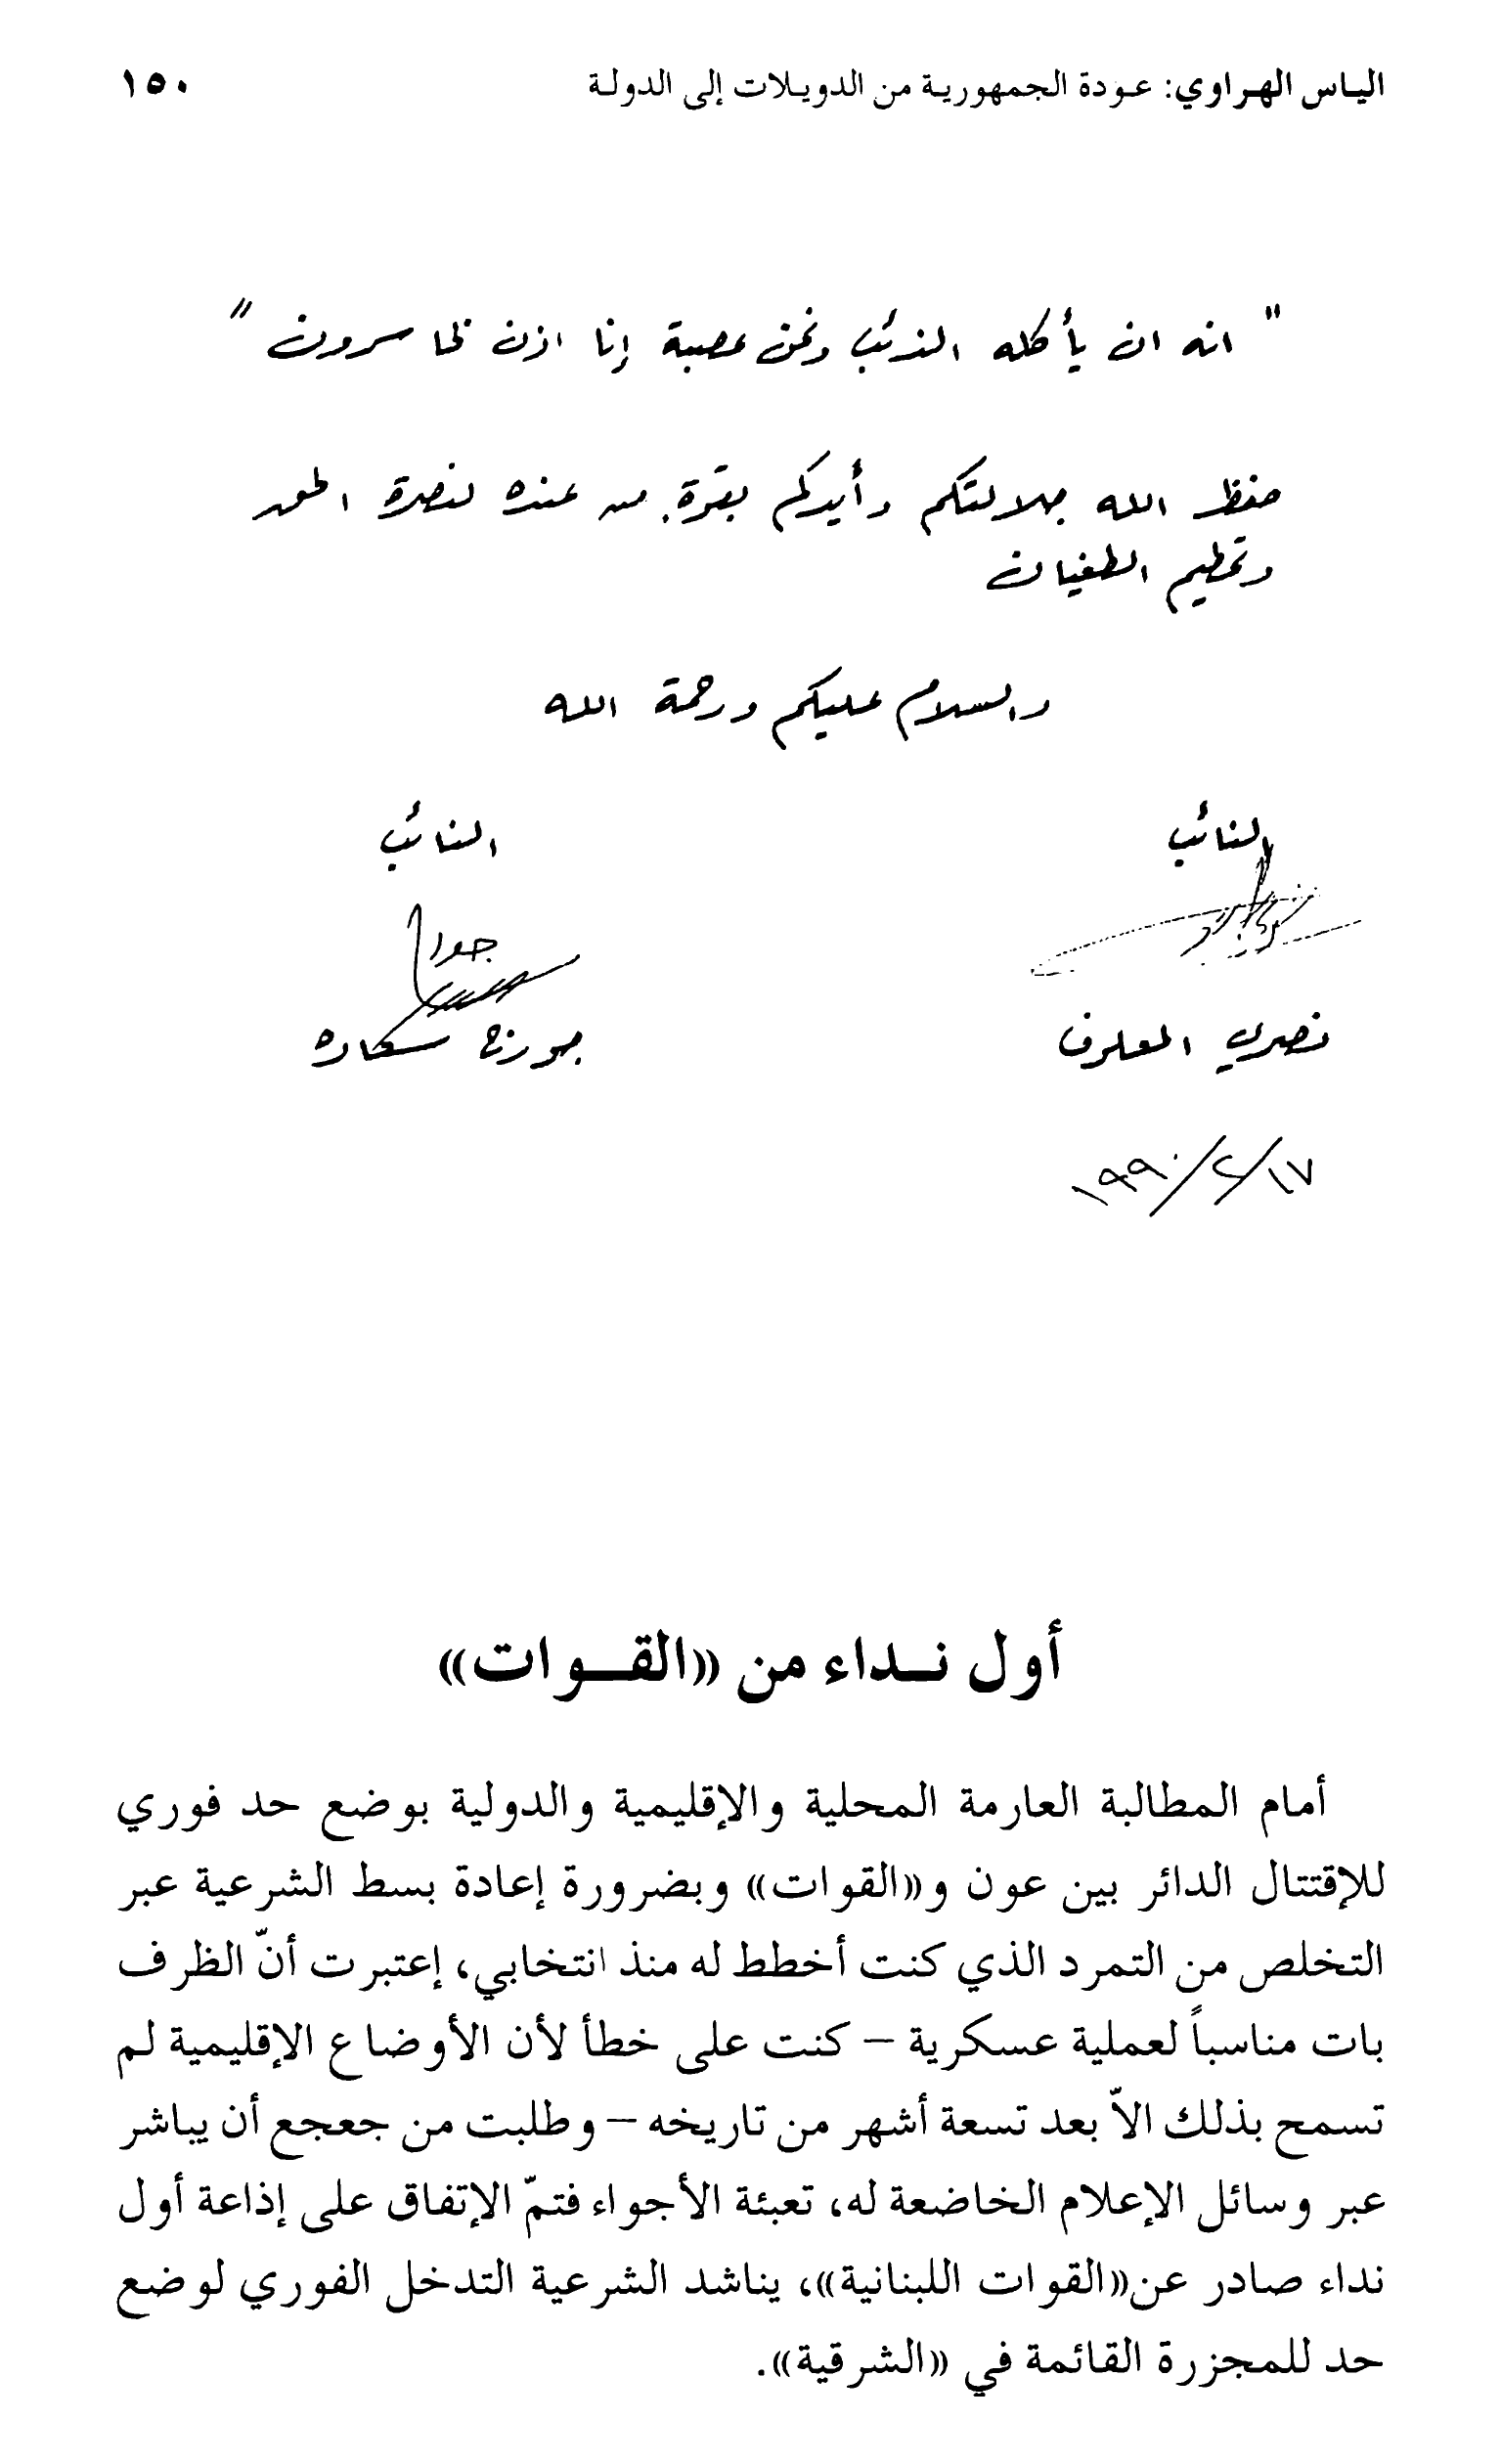 الياس الهراوي: عودة الجمهورية من الدويلات إلى الدولة ١٥٠
" انه ان يأكله الذئب ونحن عصبة إنا اذن لخاسرون "
حفظ الله جلالتكم وأيدكم بقوة من عنده لنصرة الحق
وتحطيم الطغيان
والسلام عليكم ورحمة الله
النائب النائب
نصري المعلوف جورج سعاده
١٩٩٠/٢/١٧
أول نداء من «القوات»
أمام المطالبة العارمة المحلية والإقليمية والدولية بوضع حد فوري
للإقتتال الدائر بين عون و«القوات» وبضرورة إعادة بسط الشرعية عبر
التخلص من التمرد الذي كنت أخطط له منذ انتخابي، إعتبرت أنّ الظرف
بات مناسباً لعملية عسكرية – كنت على خطأ لأن الأوضاع الإقليمية لم
تسمح بذلك الاّ بعد تسعة أشهر من تاريخه – وطلبت من جعجع أن يباشر
عبر وسائل الإعلام الخاضعة له، تعبئة الأجواء فتمّ الإتفاق على إذاعة أول
نداء صادر عن«القوات اللبنانية»، يناشد الشرعية التدخل الفوري لوضع
حد للمجزرة القائمة في «الشرقية».